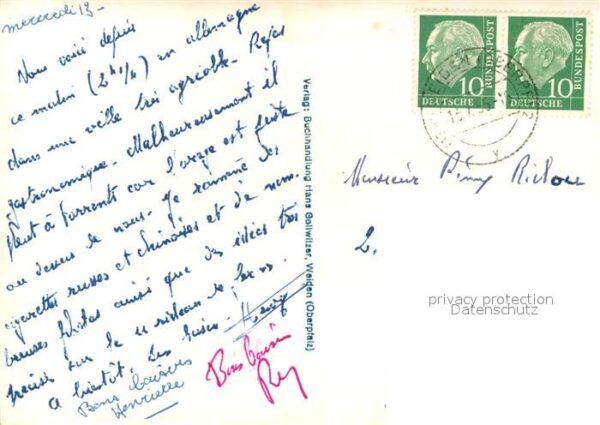 mercredi 13 -
Nous voici depuis
ce matin (2h 1/4) en allemagne
dans une ville très agréable. Repas
gastronomique. Malheureusement il
pleut à torrents car l'orage est juste
au dessus de nous. Je ramène des
cigarettes russes et chinoises et de nom-
breuses photos ainsi que des idées très
précises sur le rideau de fer.
A bientôt.
Henry
Bons baisers
Henriette
Bons baisers
Verlag: Buchhandlung Hans Gollwitzer, Weiden (Oberpfalz)
10
DEUTSCHE
BUNDESPOST
10
DEUTSCHE
BUNDESPOST
Monsieur Rémy
2.
privacy protection
Datenschutz